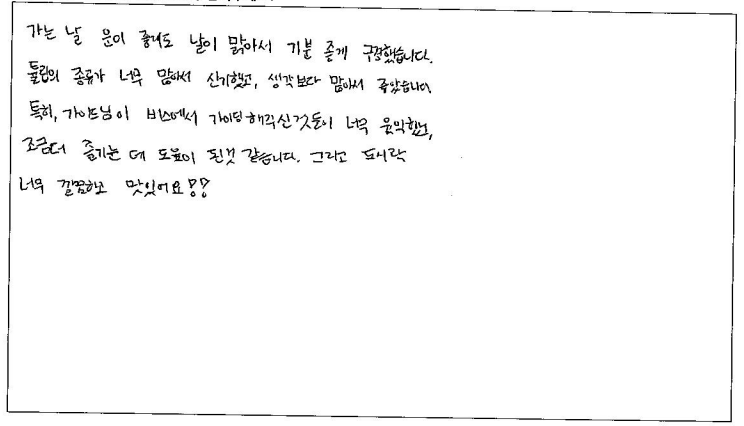 가는 날 운이 좋게도 날이 맑아서 기분 좋게 구경했습니다.
튤립의 종류가 너무 많아서 신기했고, 생각보다 많아서 좋았습니다.
특히, 가이드님이 버스에서 가이딩 해주신것들이 너무 유익했고,
조금더 즐기는 데 도움이 된것 같습니다. 그리고 도시락
너무 깔끔하고 맛있어요!!